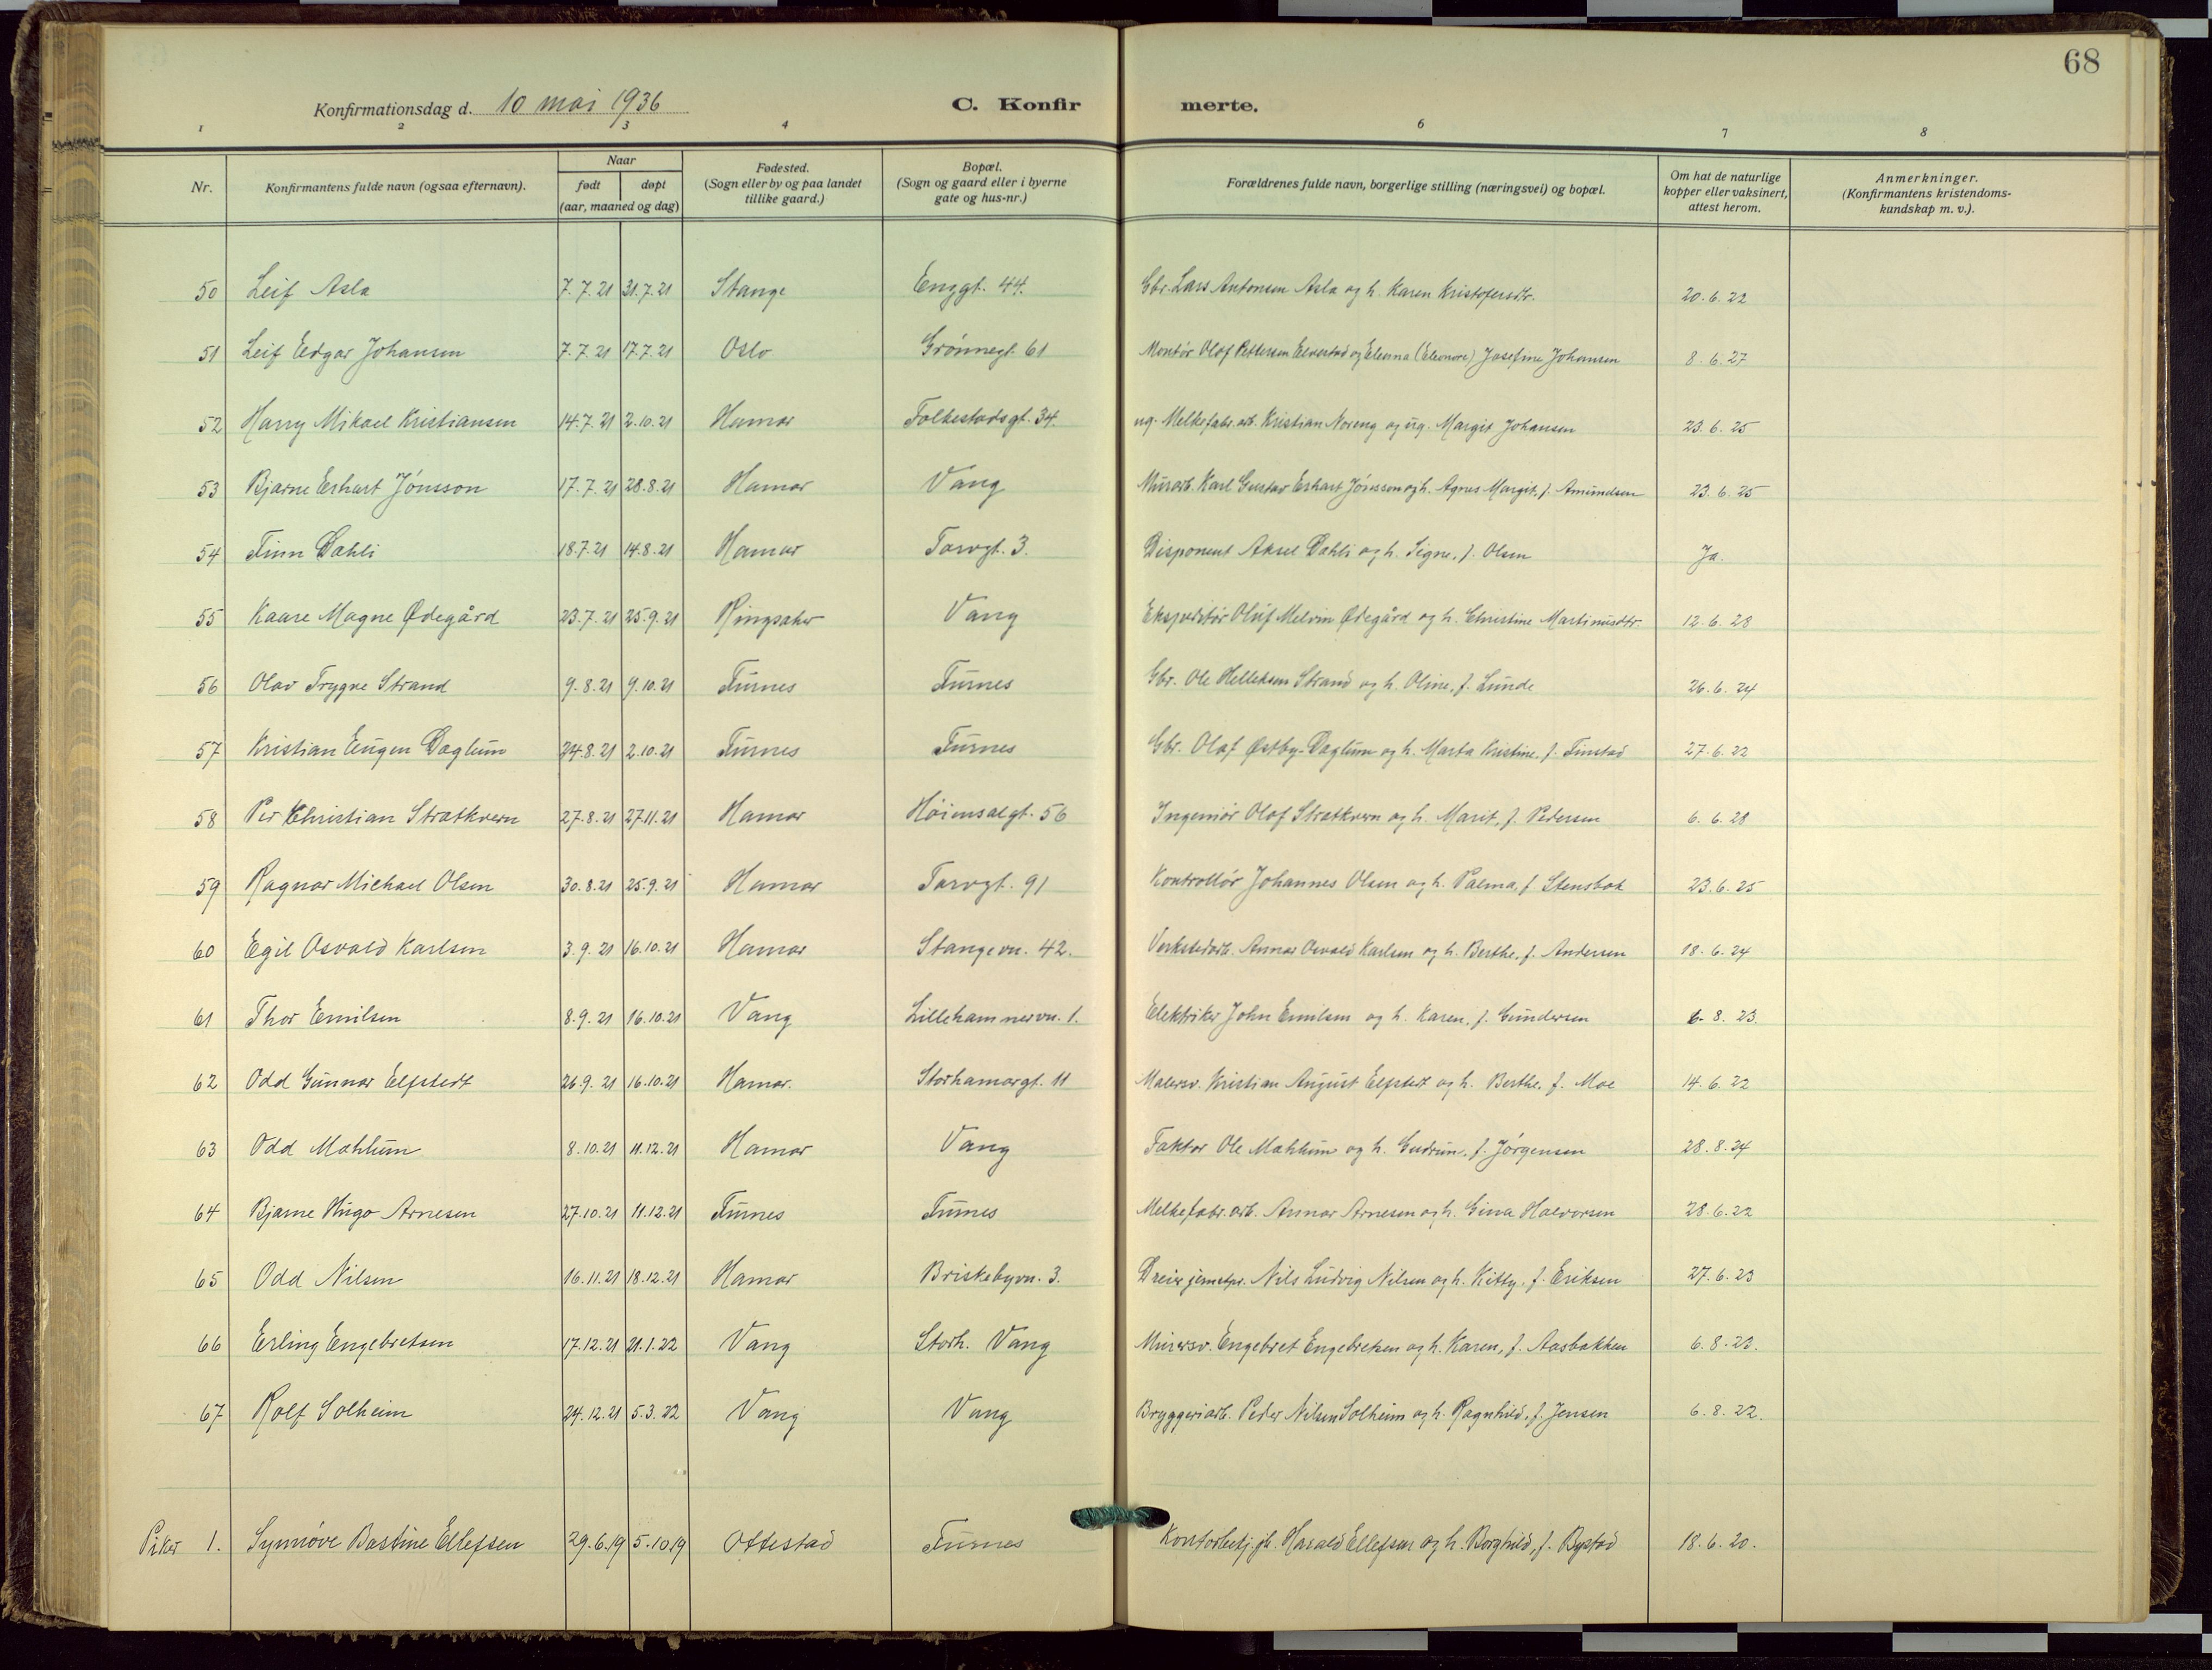 68
Konfirmationsdag d. 10 mai 1936
C. Konfirmerte.
1 2 3 4 6 7 8
Nr.
Konfirmantens fulde navn (ogsaa efternavn).
Naar
født døpt
(aar, maaned og dag)
Fødested.
(Sogn eller by og paa landet
tillike gaard.)
Bopæl.
(Sogn og gaard eller i byerne
gate og hus-nr.)
Forældrenes fulde navn, borgerlige stilling (næringsvei) og bopæl.
Om hat de naturlige
kopper eller vaksinert,
attest herom.
Anmerkninger.
(Konfirmantens kristendoms-
kundskap m. v.).
50 Leif Asla 7.7.21 31.7.21 Stange Enggt. 44. Gbr. Lars Antonsen Asla og h. Karen Kristofersdtr. 20.6.22
51 Leif Edgar Johansen 7.7.21 17.7.21 Oslo Grønnegt. 61 Montör Olaf Pettersen og (Eleonore) Josefine Johansen 8.6.27
52 Harry Mikael Kristiansen 14.7.21 2.10.21 Hamar Folkestadsgt. 34. ug. Melkefabr.arb. Kristian Noreng og ug. Margit Johansen 23.6.25
53 Bjarne Erhart Jónsson 17.7.21 28.8.21 Hamar Vang Murarb. Karl Gustav Erhart Jónsson og h. Agnes Margit, f. Amundsen 23.6.25
54 Finn Dahli 18.7.21 14.8.21 Hamar Torvgt. 3. Disponent Aksel Dahli og h. Signe, f. Olsen Ja.
55 Kaare Magne Ødegård 23.7.21 25.9.21 Ringsaker Vang Ekspeditör Oluf Melvin Ødegård og h. Christine Martinusdtr. 12.6.28
56 Olav Trygve Strand 9.8.21 9.10.21 Furnes Furnes Gbr. Ole Helleksen Strand og h. Oline, f. Lunde 26.6.24
57 Kristian Eugen Daglum 24.8.21 2.10.21 Furnes Furnes Gbr. Olaf Østby-Daglum og h. Marta Kristine, f. Finstad 27.6.22
58 Per Christian Strætkvern 27.8.21 27.11.21 Hamar Höiensalgt. 56 Ingeniör Olaf Strætkvern og h. Marit, f. Pedersen 6.6.28
59 Ragnar Michael Olsen 30.8.21 25.9.21 Hamar Torvgt. 91 Kontrollör Johannes Olsen og h. Palma, f. Stensbak 23.6.25
60 Egil Osvald Karlsen 3.9.21 16.10.21 Hamar Stangevn. 42. Verkstedarb. Annar Osvald Karlsen og h. Berthe, f. Andersen 18.6.24
61 Thor Emilsen 8.9.21 16.10.21 Vang Lillehammervn. 1. Elektriker John Emilsen og h. Karen, f. Gundersen 6.8.23.
62 Odd Gunnar Elfstedt 26.9.21 16.10.21 Hamar. Storhamargt. 11 Malersv. Kristian August Elfstedt og h. Berthe, f. Moe 14.6.22
63 Odd Mæhlum 8.10.21 11.12.21 Hamar Vang Faktor Ole Mæhlum og h. Gudrun, f. Jørgensen 28.8.24
64 Bjarne Hugo Arnesen 27.10.21 11.12.21 Furnes Furnes Melkefabr.arb. Annar Arnesen og h. Gina Halvorsen 28.6.22
65 Odd Nilsen 16.11.21 18.12.21 Hamar Briskebyvn. 3. Nils Ludvig Nilsen og h. Kitty, f. Eriksen 27.6.23
66 Erling Engebretsen 17.12.21 21.1.22 Vang Storh. Vang Murersv. Engebret Engebretsen og h. Karen, f. Aasbakken 6.8.22.
67 Rolf Solheim 24.12.21 5.3.22 Vang Vang Bryggeriarb. Peder Nilsen Solheim og h. Ragnhild, f. Jensen 6.8.22.
Piker 1. Synnöve Bastine Ellefsen 29.6.19 5.10.19 Ottestad Furnes Harald Ellefsen og h. Borghild, f. Bystad 18.6.20.